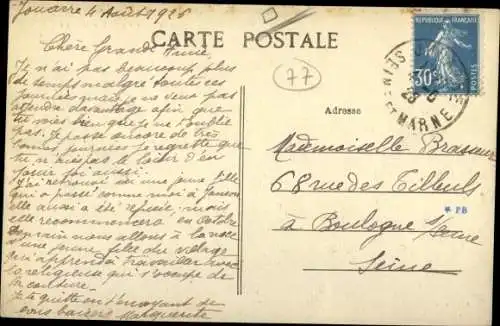 Jouarre 4 Août 1926
Chère Grande Amie,
Je n'ai pas beaucoup plus
de temps malgré toutes ces
journées, mais je ne veux pas
attendre davantage afin que
tu vois bien que je ne t'oublie
pas. Je passe encore de très
bonnes journées je regrette que
tu n'aies pas le loisir d'en
jouir toi aussi.
J'ai retrouvé ici une jeune fille
qui a passé comme moi à
elle aussi a été refusée; mais elle
recommencera en Octobre
Demain nous allons à la noce
d'une jeune fille du village
qui apprend à travailler avec
la religieuse qui s'occupe de
la couture.
Je te quitte en t'envoyant de
bons baisers Marguerite
CARTE POSTALE
77
Adresse
Mademoiselle Brasseur
68 rue des Tilleuls
à Boulogne s/Seine
Seine
* PB
REPUBLIQUE FRANÇAISE
30
POSTES
SEINE ET MARNE